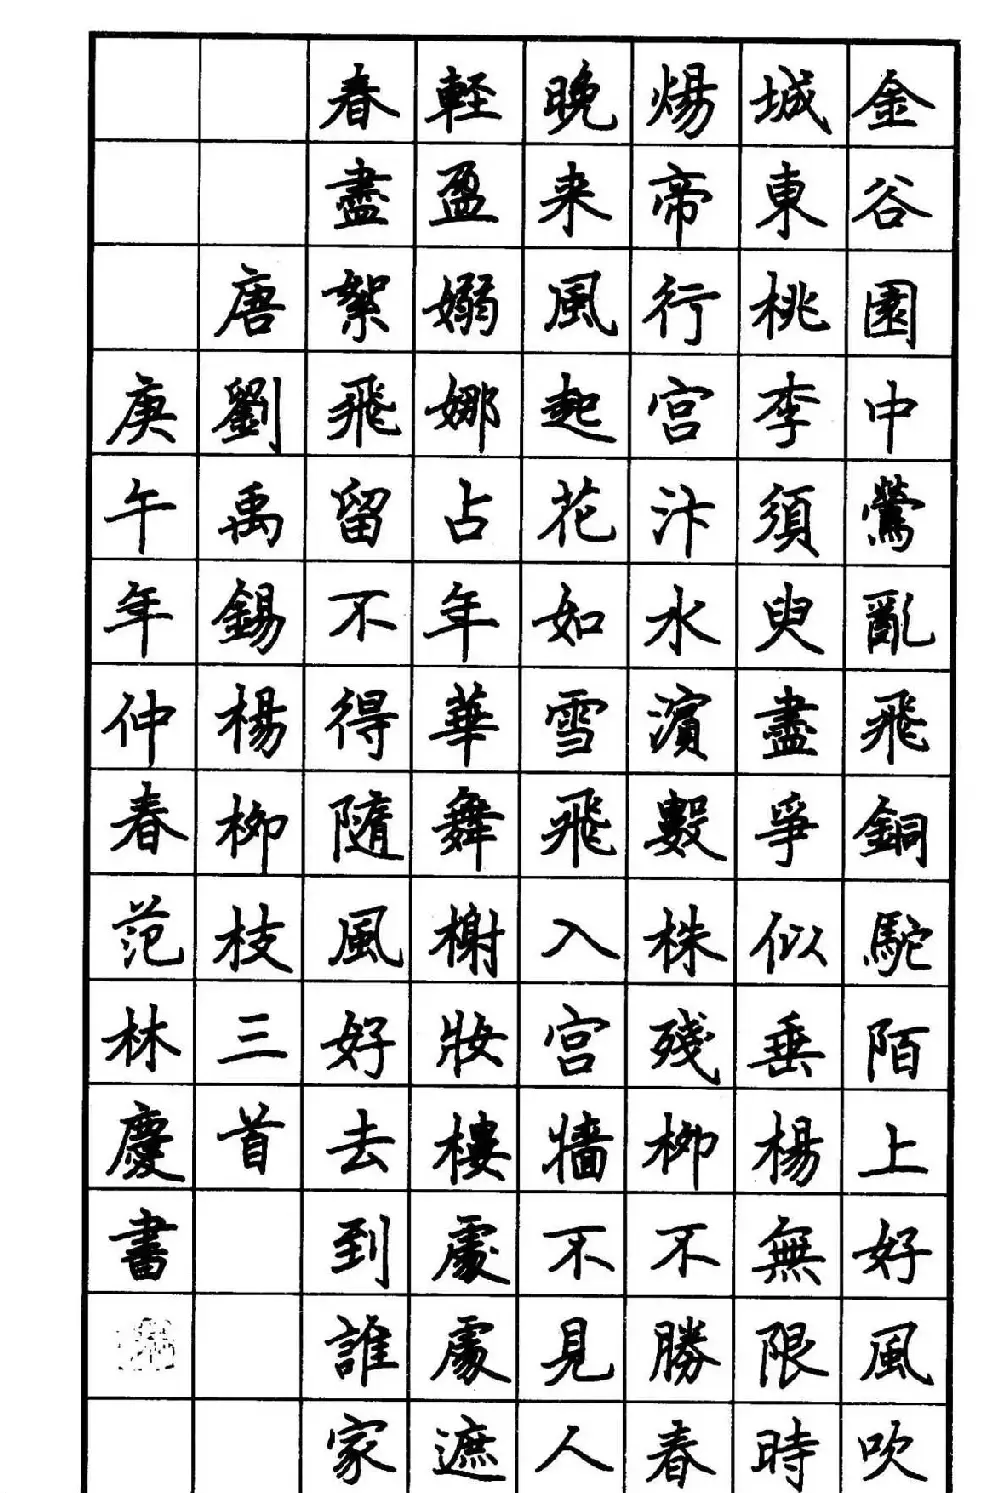 金谷園中鶯亂飛銅駝陌上好風吹
城東桃李須臾盡爭似垂楊無限時
煬帝行宮汴水濱數株殘柳不勝春
晚来風起花如雪飛入宮牆不見人
輕盈嫋娜占年華舞榭妝樓處處遮
春盡絮飛留不得隨風好去到誰家
唐劉禹錫楊柳枝三首
庚午年仲春范林慶書